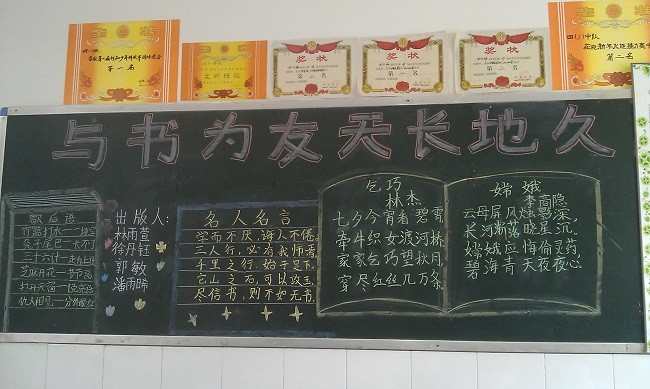 第一名
奖状
奖状
奖状
第二名
与书为友天长地久
歇后语
竹篮打水一场空
兔子尾巴一长不了
三十六计一走为上
芝麻开花一节节高
仇人相见一分外眼红
出版人:
林雨萱
徐丹钰
郭敏
潘雨晞
名人名言
学而不厌,诲人不倦。
三人行,必有我师焉
千里之行,始于足下。
它山之石,可以攻玉。
尽信书,则不如无书。
乞巧
林杰
七夕今宵看碧霄
牵牛织女渡河桥
家家乞巧望秋月
穿尽红丝几万条
嫦娥
李商隐
云母屏风烛影深,
长河渐落晓星沉。
嫦娥应悔偷灵药,
碧海青天夜夜心。